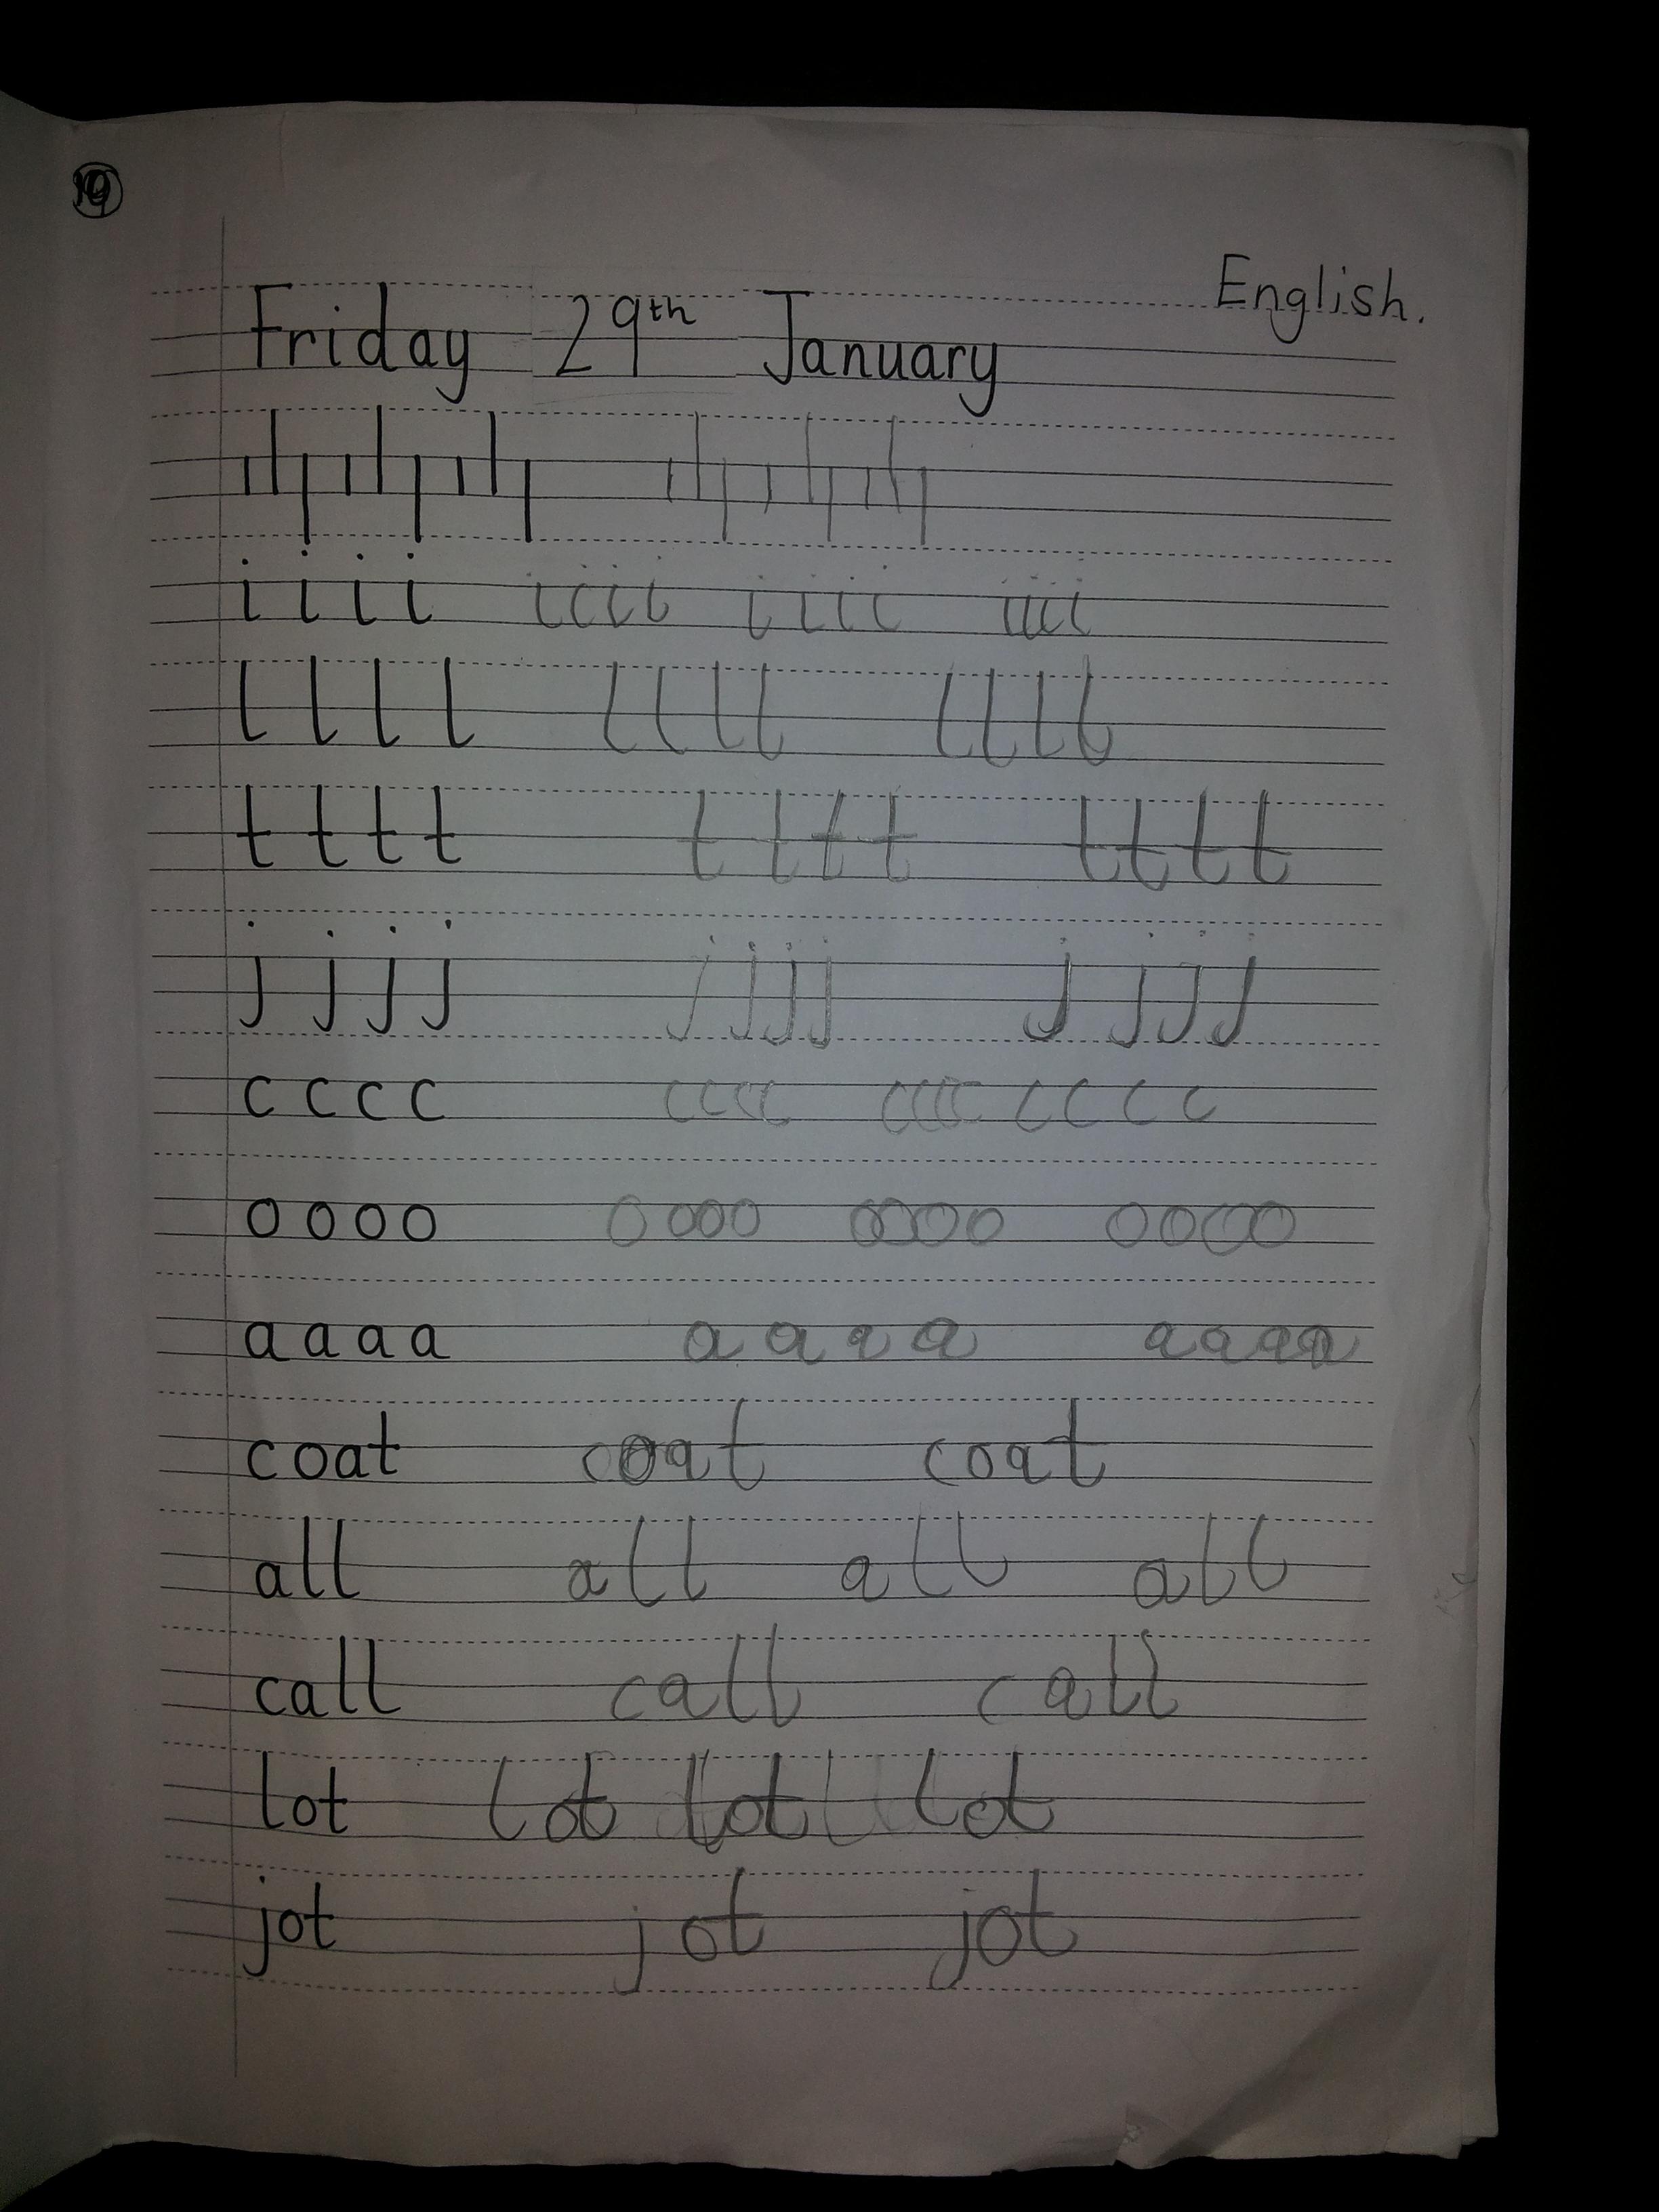 English.
Friday 29th January
i i i i i i i i i i i i i i i i
l l l l l l l l l l l l
t t t t t t t t t t t t
j j j j j j j j j j j j
c c c c c c c c c c c c c c c c
o o o o o o o o o o o o o o o o
a a a a a a a a a a a a
coat coat coat
all all all all
call call call
lot lot lot lot
jot jot jot